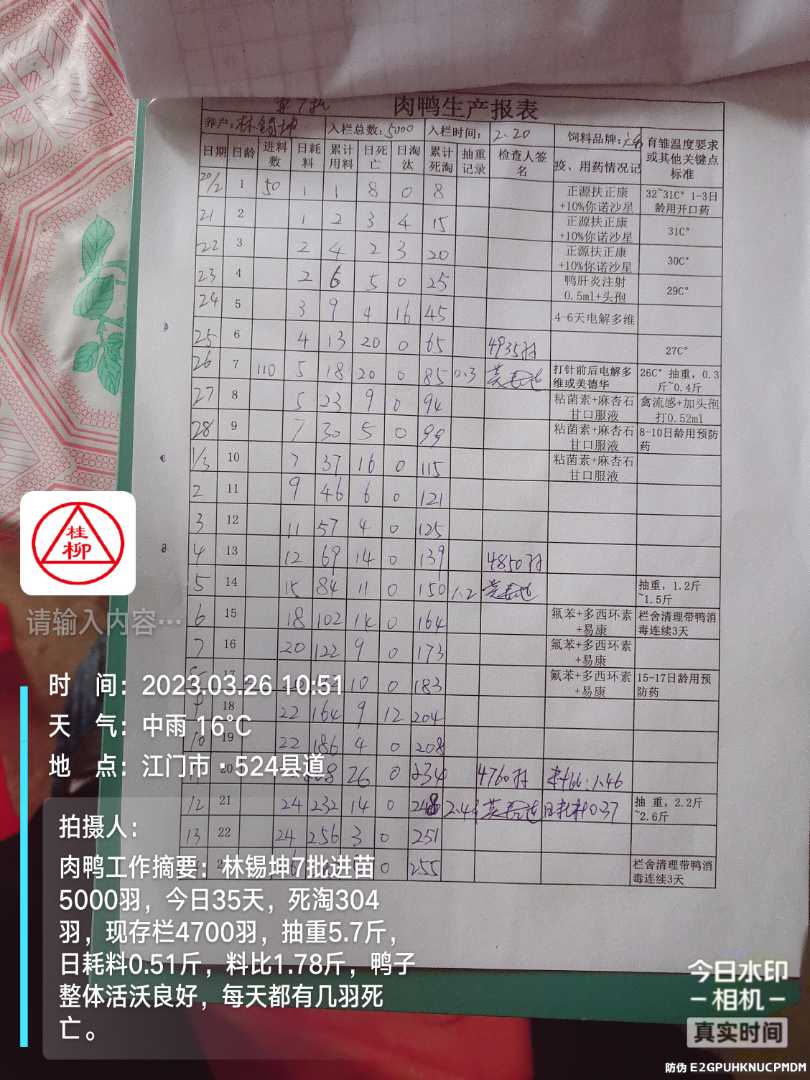 第7批
肉鸭生产报表
养户:林锡坤 入栏总数:5000 入栏时间:2.20 饲料品牌: 育雏温度要求或其他关键点标准
日期 日龄 进料数 日耗料 累计用料 日死亡 日淘汰 累计死淘 抽重记录 检查人签名 疫、用药情况记
20/2 1 50 1 1 8 0 8 正源扶正康+10%你诺沙星 32~31C° 1-3日龄用开口药
21 2 1 2 3 4 15 正源扶正康+10%你诺沙星 31C°
22 3 2 4 2 3 20 正源扶正康+10%你诺沙星 30C°
23 4 2 6 5 0 25 鸭肝炎注射0.5ml+头孢 29C°
24 5 3 9 4 16 45 4-6天电解多维
25 6 4 13 20 0 65 4935羽 27C°
26 7 110 5 18 20 0 85 0.3 打针前后电解多维或美德华 26C° 抽重，0.3斤~0.4斤
27 8 5 23 9 0 94 粘菌素+麻杏石甘口服液 禽流感+加头孢打0.52ml
28 9 7 30 5 0 99 粘菌素+麻杏石甘口服液 8-10日龄用预防药
1/3 10 7 37 16 0 115 粘菌素+麻杏石甘口服液
2 11 9 46 6 0 121
3 12 11 57 4 0 125
4 13 12 69 14 0 139 4850羽
5 14 15 84 11 0 150 1.2 抽重，1.2斤~1.5斤
6 15 18 102 14 0 164 氟苯+多西环素+易康 栏舍清理带鸭消毒连续3天
7 16 20 122 9 0 173 氟苯+多西环素+易康
17 10 0 183 氟苯+多西环素+易康 15-17日龄用预防药
9 18 22 164 9 12 204
10 19 22 186 4 0 208
20 26 0 234 4760羽 料比:1.46
12 21 24 232 14 0 248 2.4 日耗料0.37 抽重，2.2斤~2.6斤
13 22 24 256 3 0 251
0 255 栏舍清理带鸭消毒连续3天
桂柳
请输入内容…
时 间：2023.03.26 10:51
天 气：中雨 16℃
地 点：江门市·524县道
拍摄人：
肉鸭工作摘要：林锡坤7批进苗
5000羽，今日35天，死淘304
羽，现存栏4700羽，抽重5.7斤，
日耗料0.51斤，料比1.78斤，鸭子
整体活沃良好，每天都有几羽死
亡。
今日水印
-相机-
真实时间
防伪 E2GPUHKNUCPMDM